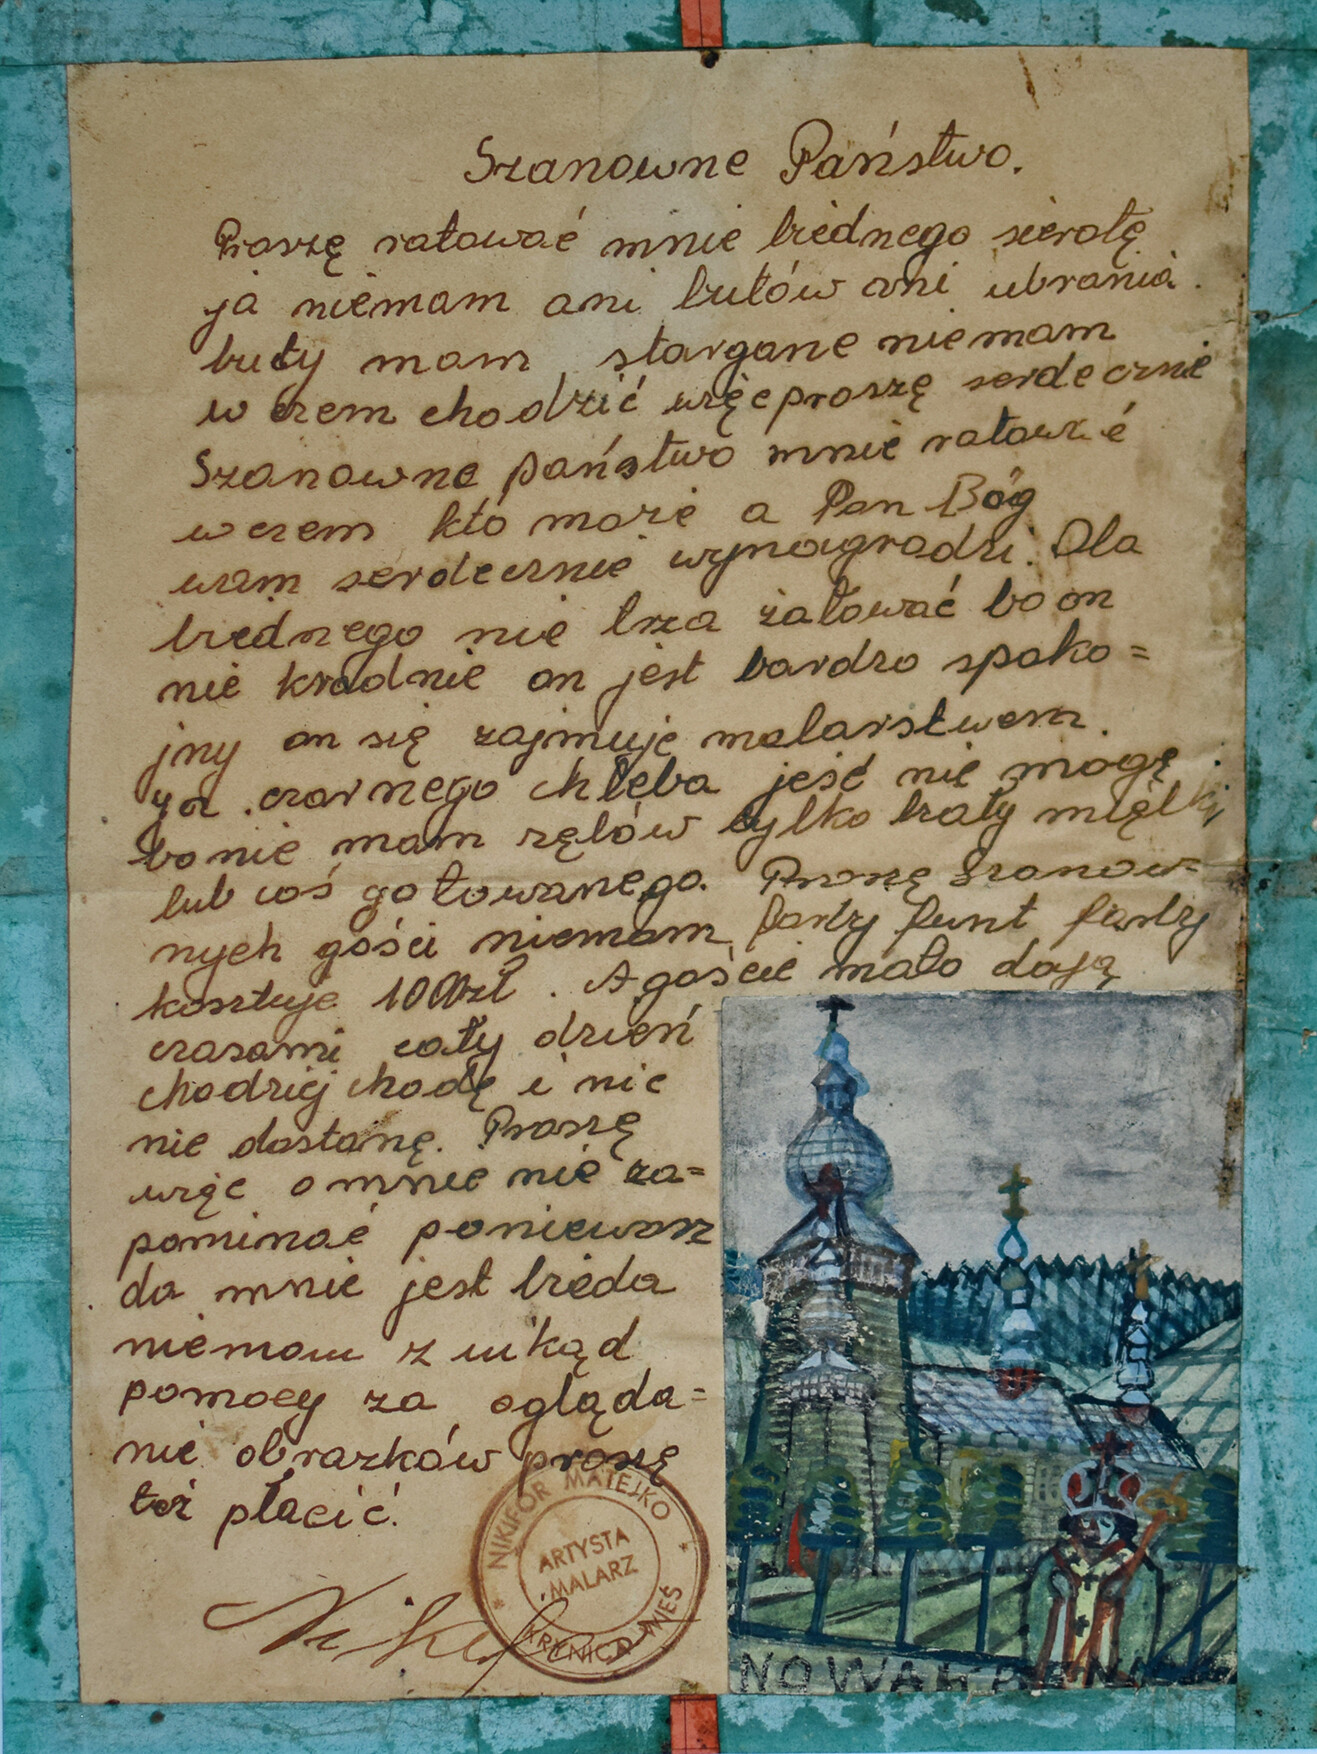 Szanowne Państwo.
Proszę ratować mnie biednego sierotę
ja niemam ani butów ani ubrania.
buty mam stargane niemam
w czem chodzić więc proszę serdecznie
Szanowne państwo mnie ratować
w czem kto może a Pan Bóg
wam serdecznie wynagradzi. Dla
biednego nie trza żałować bo on
nie kradnie on jest bardzo spako=
jny on się zajmuje malarstwem.
ja czarnego chleba jeść nie mogę
bo nie mam zębów tylko biały
lub coś gotowanego. Proszę Szanow=
nych gości niemam farby funt farby
kosztuje 1000zł. A goście mało dają
czasami cały dzień
chodzię chodę i nic
nie dostanę. Proszę
więc o mnie nie za=
pominać poniewasz
da mnie jest bieda
niemam z nikąd
pomocy za ogląda=
nie obrazków proszę
też płacić.
Nikifor
NIKIFOR MATEJKO
ARTYSTA
MALARZ
KRYNICA WIEŚ